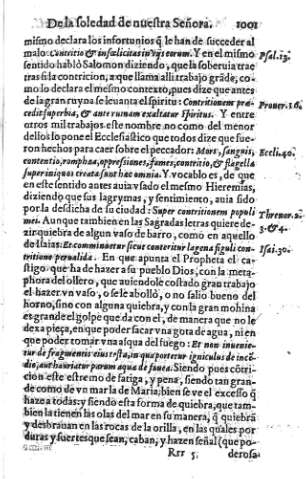 De la soledad de nuestra Señora. 1001
mismo declara los infortunios q̃ le han de succeder al
malo: Contritio & infœlicitas in vijs eorum. Y en el mismo Psal.13.
sentido habló Salomon diziendo, que la soberuia trae
tras si la contricion, a que llama alli trabajo grãde, co-
mo lo declara el mesmo contexto, pues dize que antes
de la gran ruyna se leuanta el spiritu: Contritionem præ- Prouer.16.
cedit superbia, & ante ruinam exaltatur spiritus. Y entre
otros mil trabajos este nombre no como del menor
dellos lo pone el Ecclesiastico que todos dize que fue-
ron hechos para caer sobre el peccador: Mors, sanguis, Eccli.40.
contentio, romphæa, oppressiones, fames, contritio, & flagella
super iniquos creata sunt hæc omnia. Y vocablo es, de que
en este sentido antes auia vsado el mesmo Hieremias,
diziendo que sus lagrymas, y sentimiento, auia sido
por la desdicha de su ciudad: Super contritionem populi Threnor.2.
mei. Aunque tambien en las Sagradas letras quiere de- 3.&4.
zir quiebra de algun vaso de barro, como en aquello
de Isaias: Et comminuetur sicut conteritur lagena figuli con- Isai.30.
tritione peruálida. En que apunta el Propheta el ca-
stigo que ha de hazer a su pueblo Dios, con la meta-
phora del ollero, que auiendole costado gran trabajo
el hazer vn vaso, o se le abolló, o no salio bueno del
horno, sino con alguna quiebra, y con la gran mohina
es grande el golpe que da con el, de manera que no le
dexa pieça, en que poder sacar vna gota de agua, ni en
que poder tomar vna asqua del fuego: Et non inuenie-
tur de fragmentis eius testa, in qua portetur igniculus de incẽ-
dio, aut hauriatur parum aquæ de fouea. Siendo pues cõtri-
cion este estremo de fatiga, y pena, siendo tan gran-
de como de vn mar la de Maria; bien se ve el excesso q̃
haze a todas: y siendo esta forma de quiebra, que tam-
bien la tienen las olas del mar en su manera, q̃ quiebrã
y desbrauan en las rocas de la orilla, en las quales por
duras y fuertes que sean, caban, y hazen señal (que po-
Rrr 5 derosa